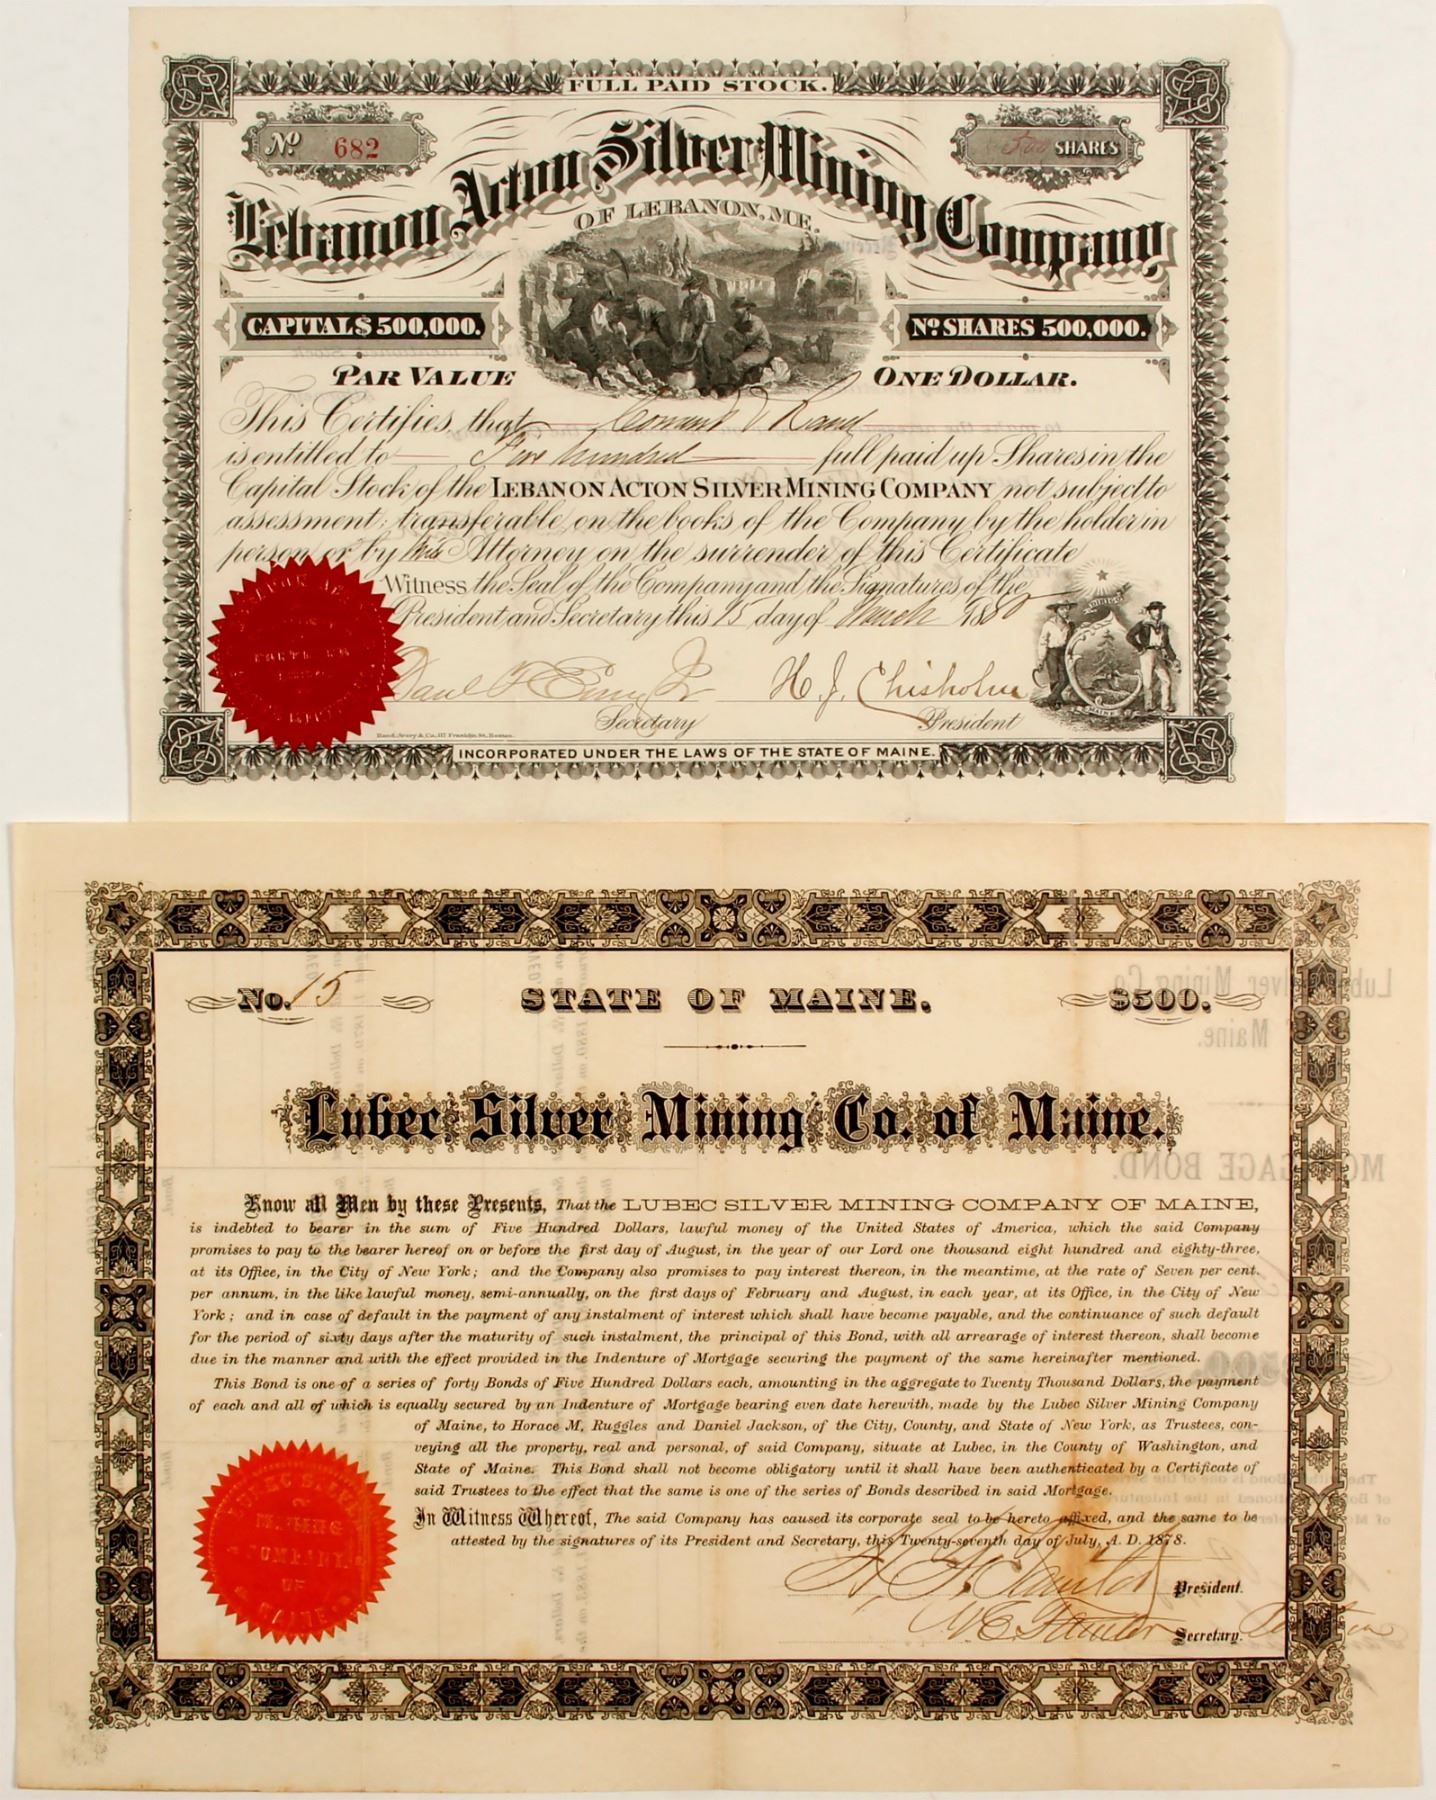 FULL PAID STOCK.
No 682
500 SHARES
Lebanon Acton Silver Mining Company
OF LEBANON, ME.
CAPITAL $500,000.
No SHARES 500,000.
PAR VALUE
ONE DOLLAR.
This Certifies, that Rand
is entitled to Five hundred full paid up Shares in the
Capital Stock of the LEBANON ACTON SILVER MINING COMPANY not subject to
assessment; transferable on the books of the Company by the holder in
person or by his Attorney on the surrender of this Certificate
Witness the Seal of the Company and the Signatures of the
President and Secretary this 15 day of March 1880
H. J. Chisholm
Secretary
President
MAINE
Rand, Avery & Co., 117 Franklin St., Boston.
INCORPORATED UNDER THE LAWS OF THE STATE OF MAINE.
No. 15
STATE OF MAINE.
$500.
Lubec Silver Mining Co. of Maine.
Know all Men by these Presents, That the LUBEC SILVER MINING COMPANY OF MAINE,
is indebted to bearer in the sum of Five Hundred Dollars, lawful money of the United States of America, which the said Company
promises to pay to the bearer hereof on or before the first day of August, in the year of our Lord one thousand eight hundred and eighty-three,
at its Office, in the City of New York; and the Company also promises to pay interest thereon, in the meantime, at the rate of Seven per cent.
per annum, in the like lawful money, semi-annually, on the first days of February and August, in each year, at its Office, in the City of New
York; and in case of default in the payment of any instalment of interest which shall have become payable, and the continuance of such default
for the period of sixty days after the maturity of such instalment, the principal of this Bond, with all arrearage of interest thereon, shall become
due in the manner and with the effect provided in the Indenture of Mortgage securing the payment of the same hereinafter mentioned.
This Bond is one of a series of forty Bonds of Five Hundred Dollars each, amounting in the aggregate to Twenty Thousand Dollars, the payment
of each and all of which is equally secured by an Indenture of Mortgage bearing even date herewith, made by the Lubec Silver Mining Company
of Maine, to Horace M. Ruggles and Daniel Jackson, of the City, County, and State of New York, as Trustees, con-
veying all the property, real and personal, of said Company, situate at Lubec, in the County of Washington, and
State of Maine. This Bond shall not become obligatory until it shall have been authenticated by a Certificate of
said Trustees to the effect that the same is one of the series of Bonds described in said Mortgage.
In Witness Whereof, The said Company has caused its corporate seal to be hereto affixed, and the same to be
attested by the signatures of its President and Secretary, this Twenty-seventh day of July, A. D. 1878.
President.
Secretary.
LUBEC SILVER
MINING
COMPANY.
OF
MAINE